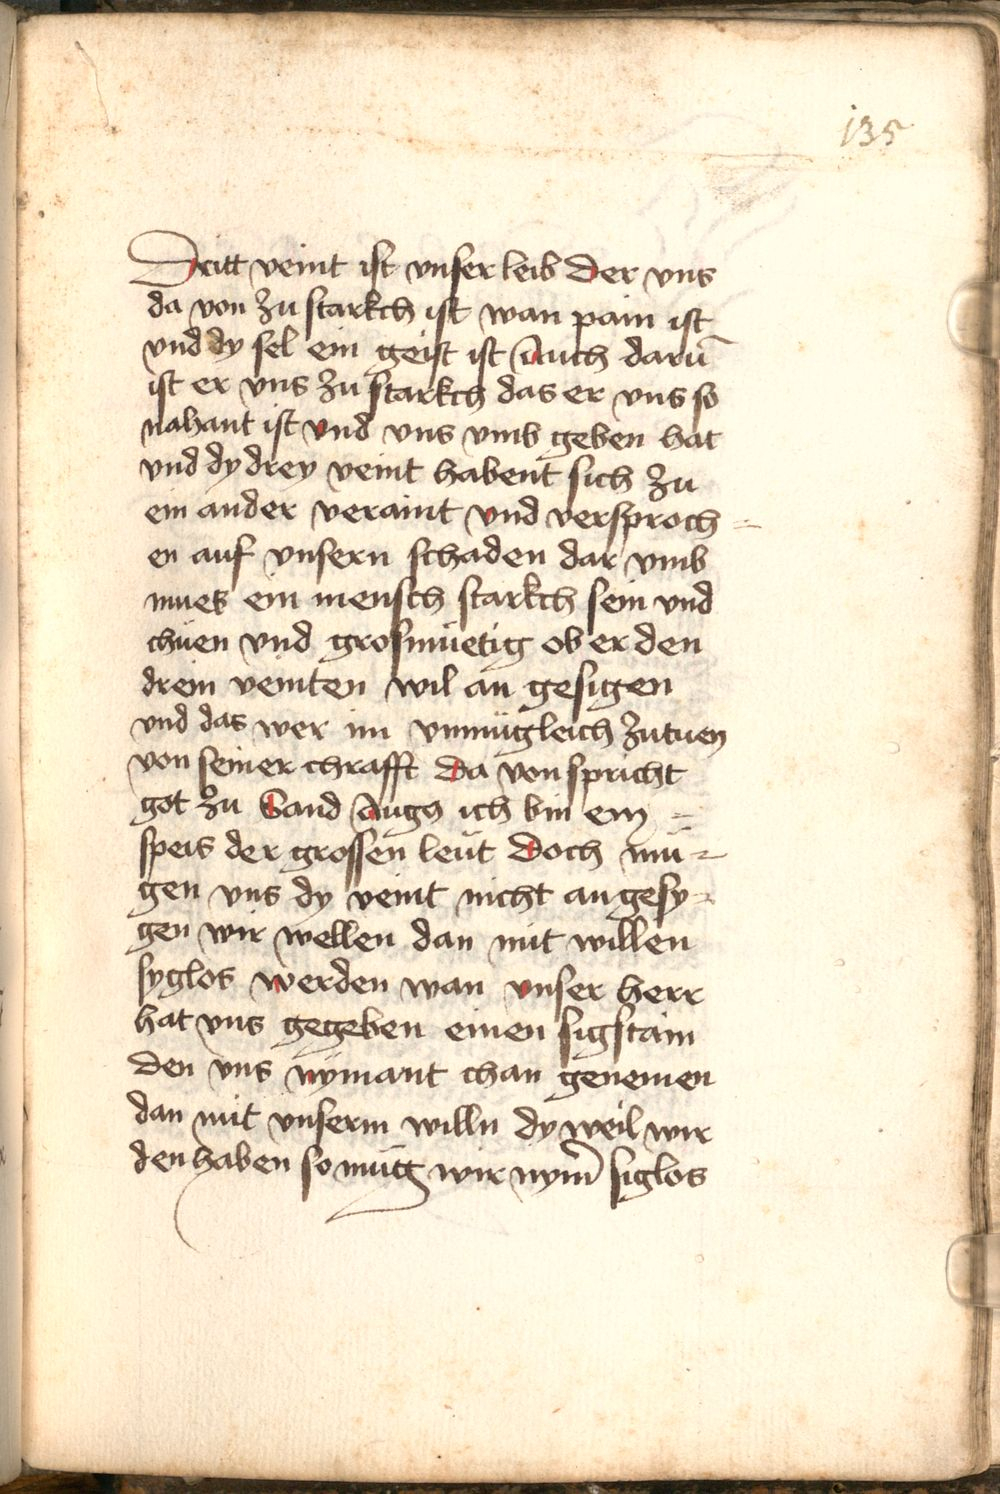 135
Dritt veint ist vnser leib Der vns
da von zu starkch ist wan pain ist
vnd dy sel ein geist ist Auch darū
ist er vns zu starkch das er vns so
nahant ist vnd vns vmb geben hat
vnd dy drey veint habent sich zu
ein ander veraint vnd versproch=
en auf vnsern schaden dar vmb
mues ein mensch starkch sein vnd
chüen vnd grosmüetig ob er den
drein veinten wil an gesigen
vnd das wer im vnmügleich zutuen
von seiner chrafft Da von spricht
got zu Sand Augꝰ ich bin ein =
speis der grossen leüt Doch mü=
gen vns dy veint nicht an gesy=
gen wir wellen dan mit willen
syglos werden wan vnser herr
hat vns gegeben einen sigstain
den vns nymant chan genemen
dan mit vnserm willn dy weil wir
den haben so müg wir nym̄ siglos